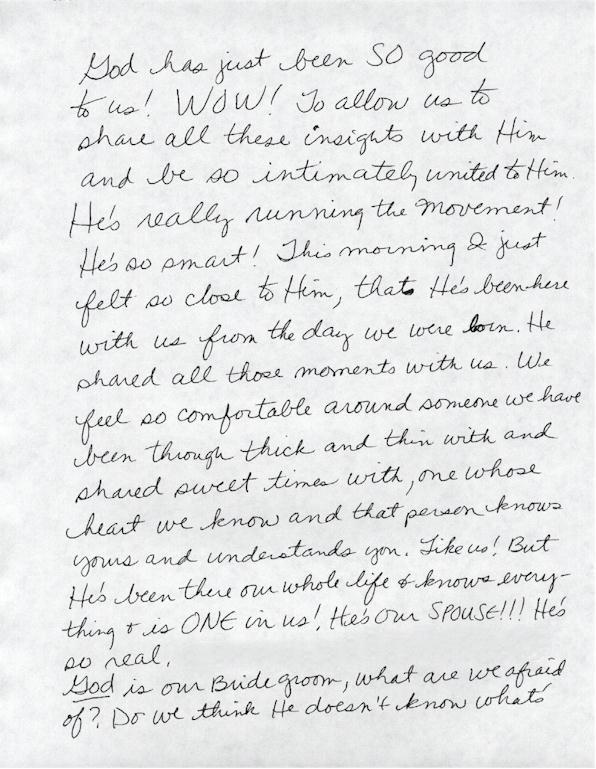 God has just been SO good
to us! WOW! To allow us to
share all these insights with Him
and be so intimately united to Him.
He's really running the Movement!
He's so smart! This morning I just
felt so close to Him, that He's been here
with us from the day we were born. He
shared all those moments with us. We
feel so comfortable around someone we have
been through thick and thin with and
shared sweet times with, one whose
heart we know and that person knows
yours and understands you. Like us! But
He's been there our whole life & knows every-
thing & is ONE in us! He's our SPOUSE!!! He's
so real.
God is our Bridegroom, what are we afraid
of? Do we think He doesn't know what's